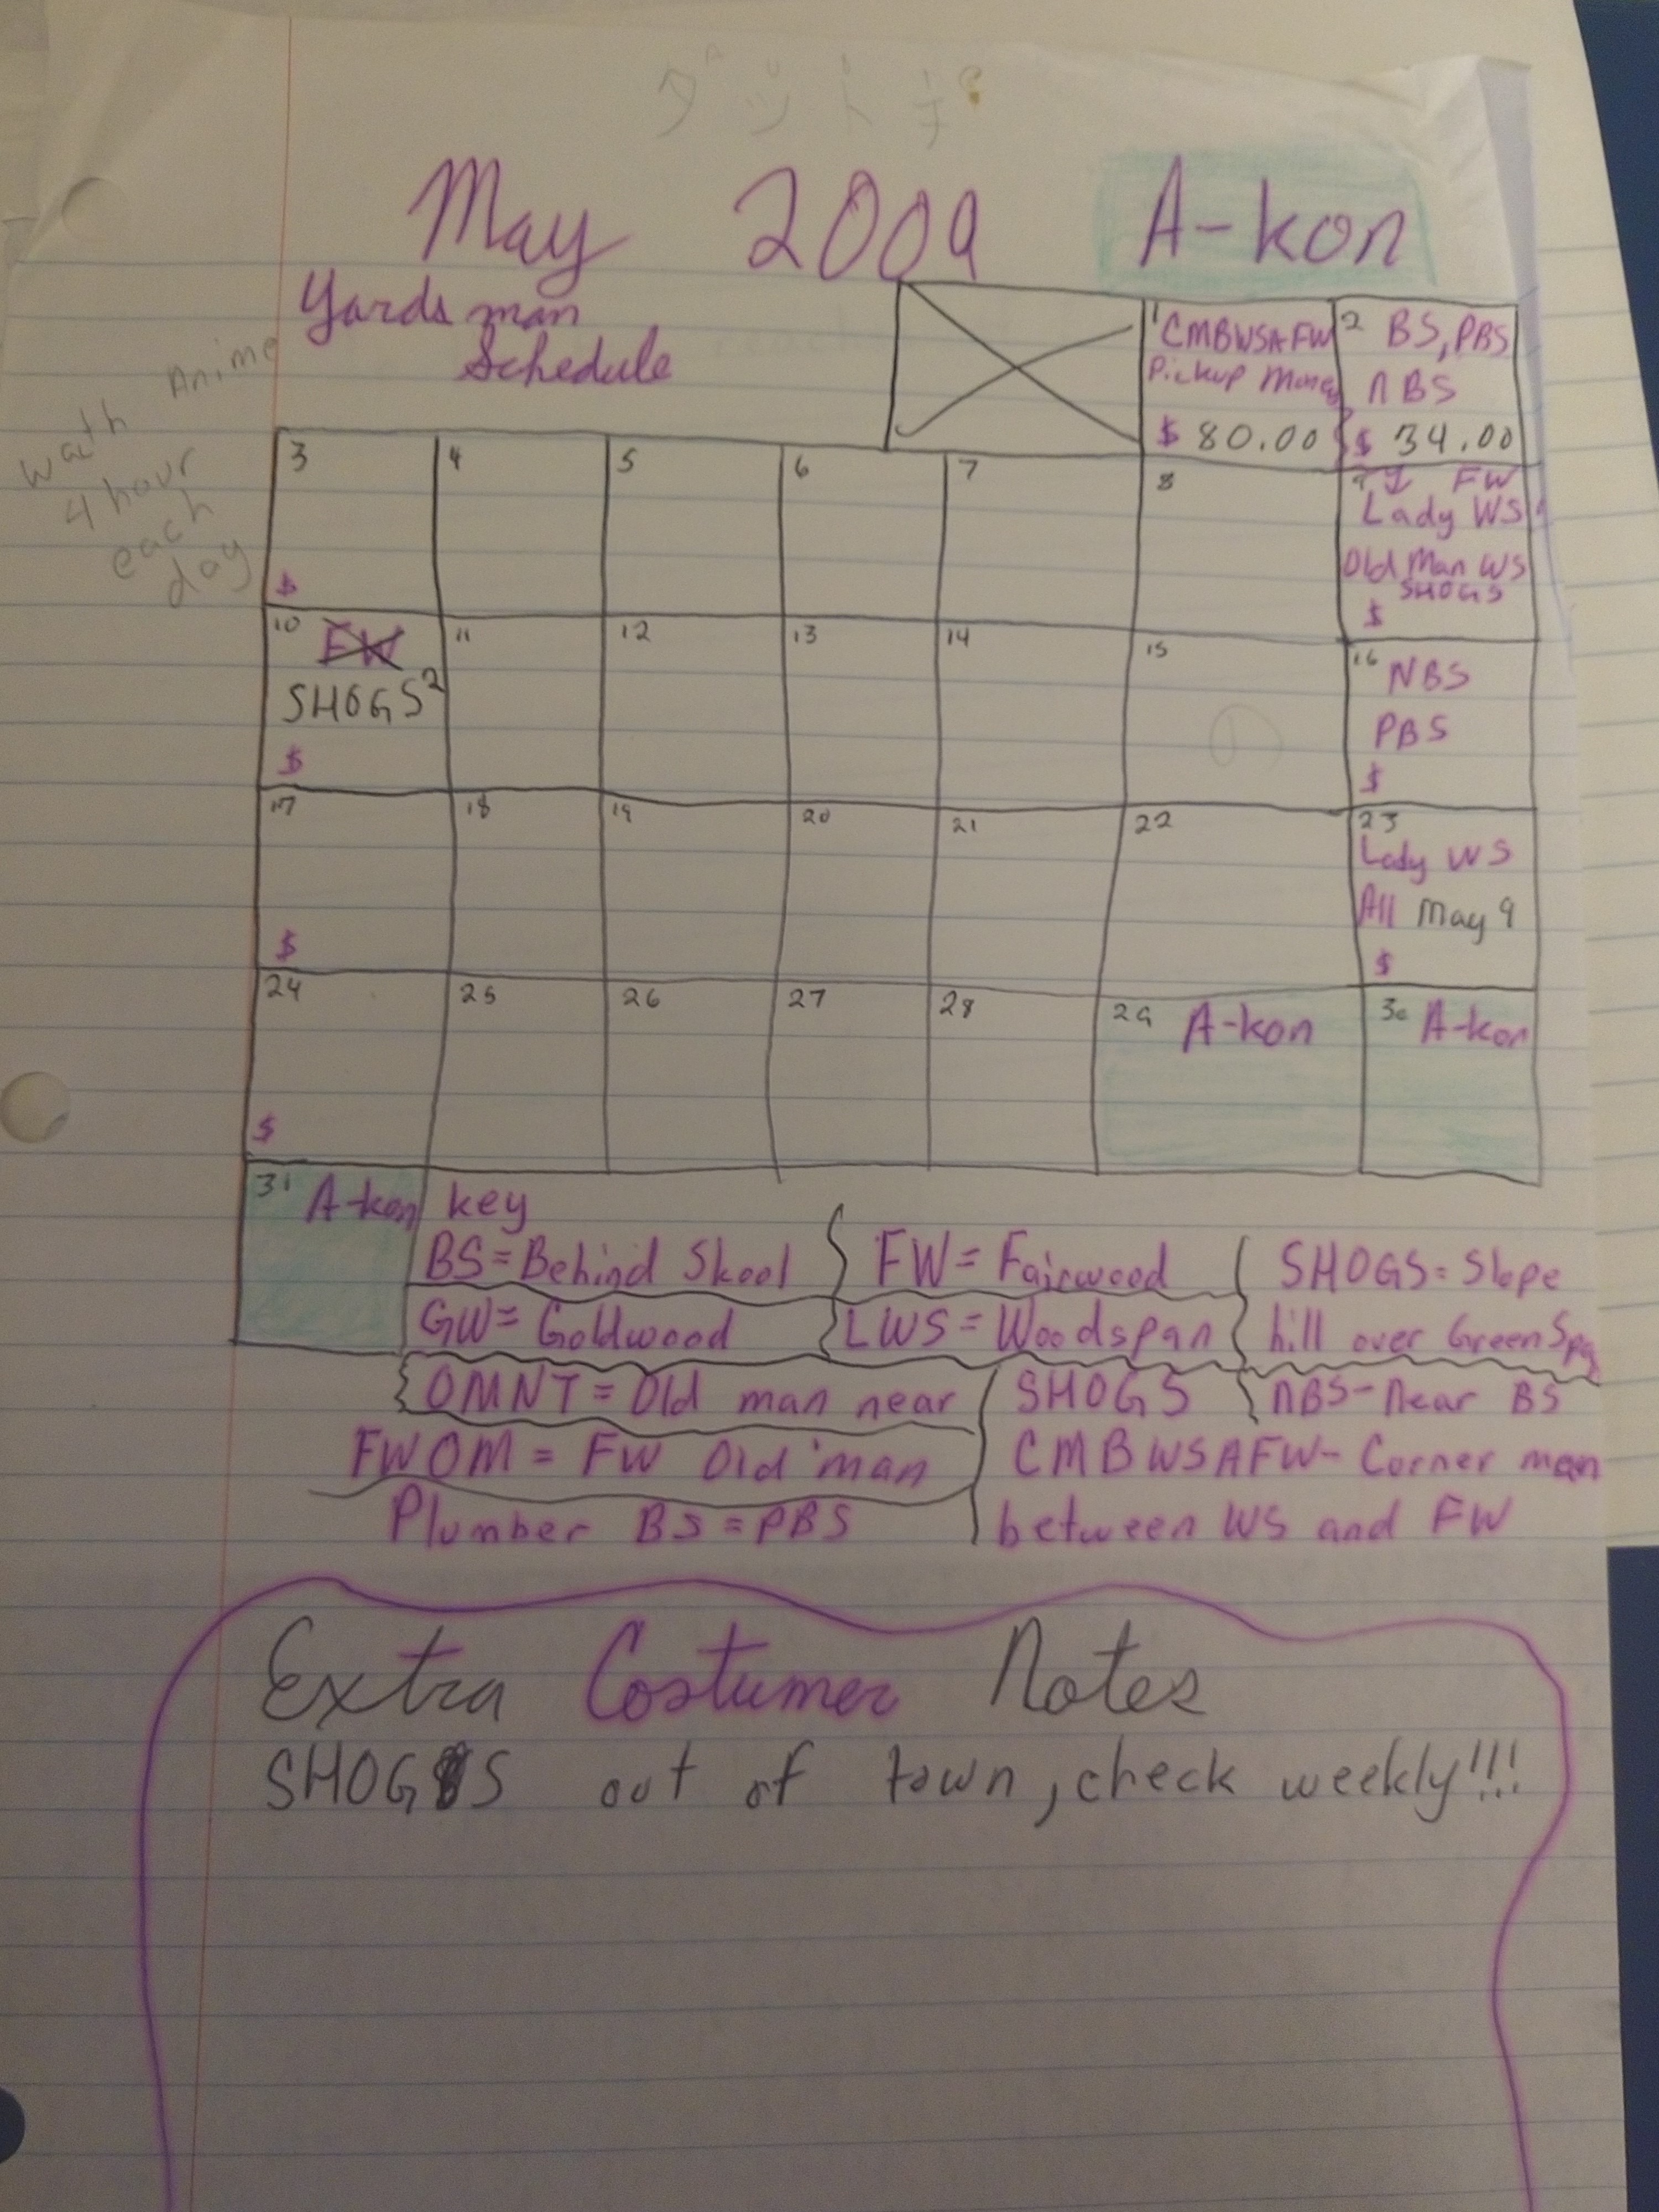 May 2009 A-kon
Yards man
Schedule
wath Anime
4 hour
each
day
1 CMBWSAFW
Pickup Money
$ 80.00
2 BS, PBS
NBS
$ 34.00
3
$
4
5
6
7
8
9 FW
Lady WS
Old Man WS
SHOGS
$
10 FW
SHOGS²
$
11
12
13
14
15
16 NBS
PBS
$
17
$
18
19
20
21
22
23
Lady WS
All May 9
$
24
$
25
26
27
28
29 A-kon
30 A-kon
31 A-kon
key
BS = Behind Skool
FW = Fairwood
SHOGS = Slope
hill over Green Spa
GW = Goldwood
LWS = Woodspan
OMNT = Old man near
SHOGS
NBS - Near BS
FWOM = FW Old man
CMBWSAFW - Corner man
between WS and FW
Plumber BS = PBS
Extra Costumer Notes
SHOGS out of town, check weekly!!!